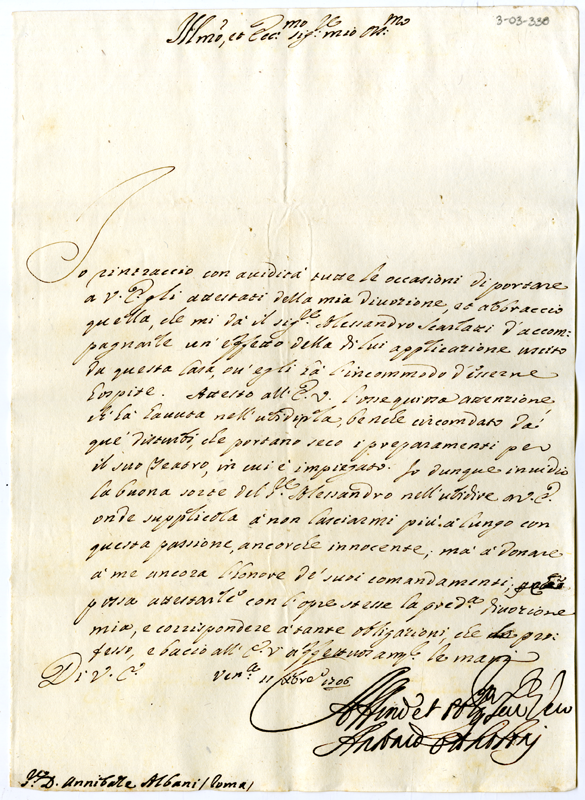 3-03-338
Ill.mo, et Ecc.mo Sig.re mio Oss.mo
Io rintraccio con avidità tutte le occasioni di portare
a V. E. gli attestati della mia divozione, et abbraccio
quella, che mi dà il sig.re Alessandro Scarlatti d'accom-
pagnarle un' effetto della di lui applicazione uscito
da questa Casa, ov' egli hà l'incommodo d'esserne
hospite. Attesto all' E. V. l'ossequiosa attenzione
ch' hà havuta nell' ubidirla, benche circondato dà
que' disturbi, che portano seco i preparamenti per
il suo Teatro, in cui è impiegato. Io dunque invidio
la buona sorte del S.re Alessandro nell' ubidire a V. E.
onde supplicola à non lasciarmi più à lungo con
questa passione, ancorche innocente; mà à donare
à me ancora l'honore de' suoi comandamenti,
possa attestarle con l'opre stesse la pred.a divozione
mia, e corrispondere à tante obligazioni, che pro-
fesso, e bacio all' E. V. affettuosam.te le mani
Di V. E. Ven.a 11 Xbre 1706
Aff.mo et Obl.mo Ser.
S.r D. Annibale Albani / Roma /